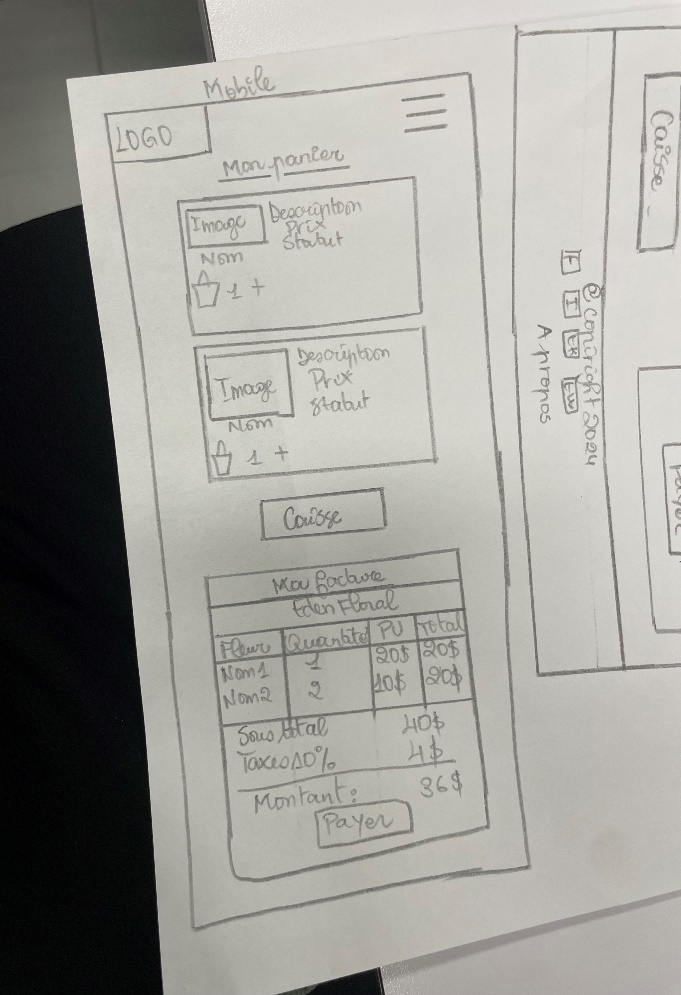 Mobile
LOGO
Mon panier
Image
Description
Prix
Statut
Nom
1 +
Image
Description
Prix
Statut
Nom
1 +
Caisse
Ma facture
Eden Floral
Fleur Quantité PU Total
Nom1 1 20$ 20$
Nom2 2 10$ 20$
Sous total 40$
Taxes 10% 4$
Montant: 36$
Payer
Caisse
Payer
@ conright 2024
F I
A propos